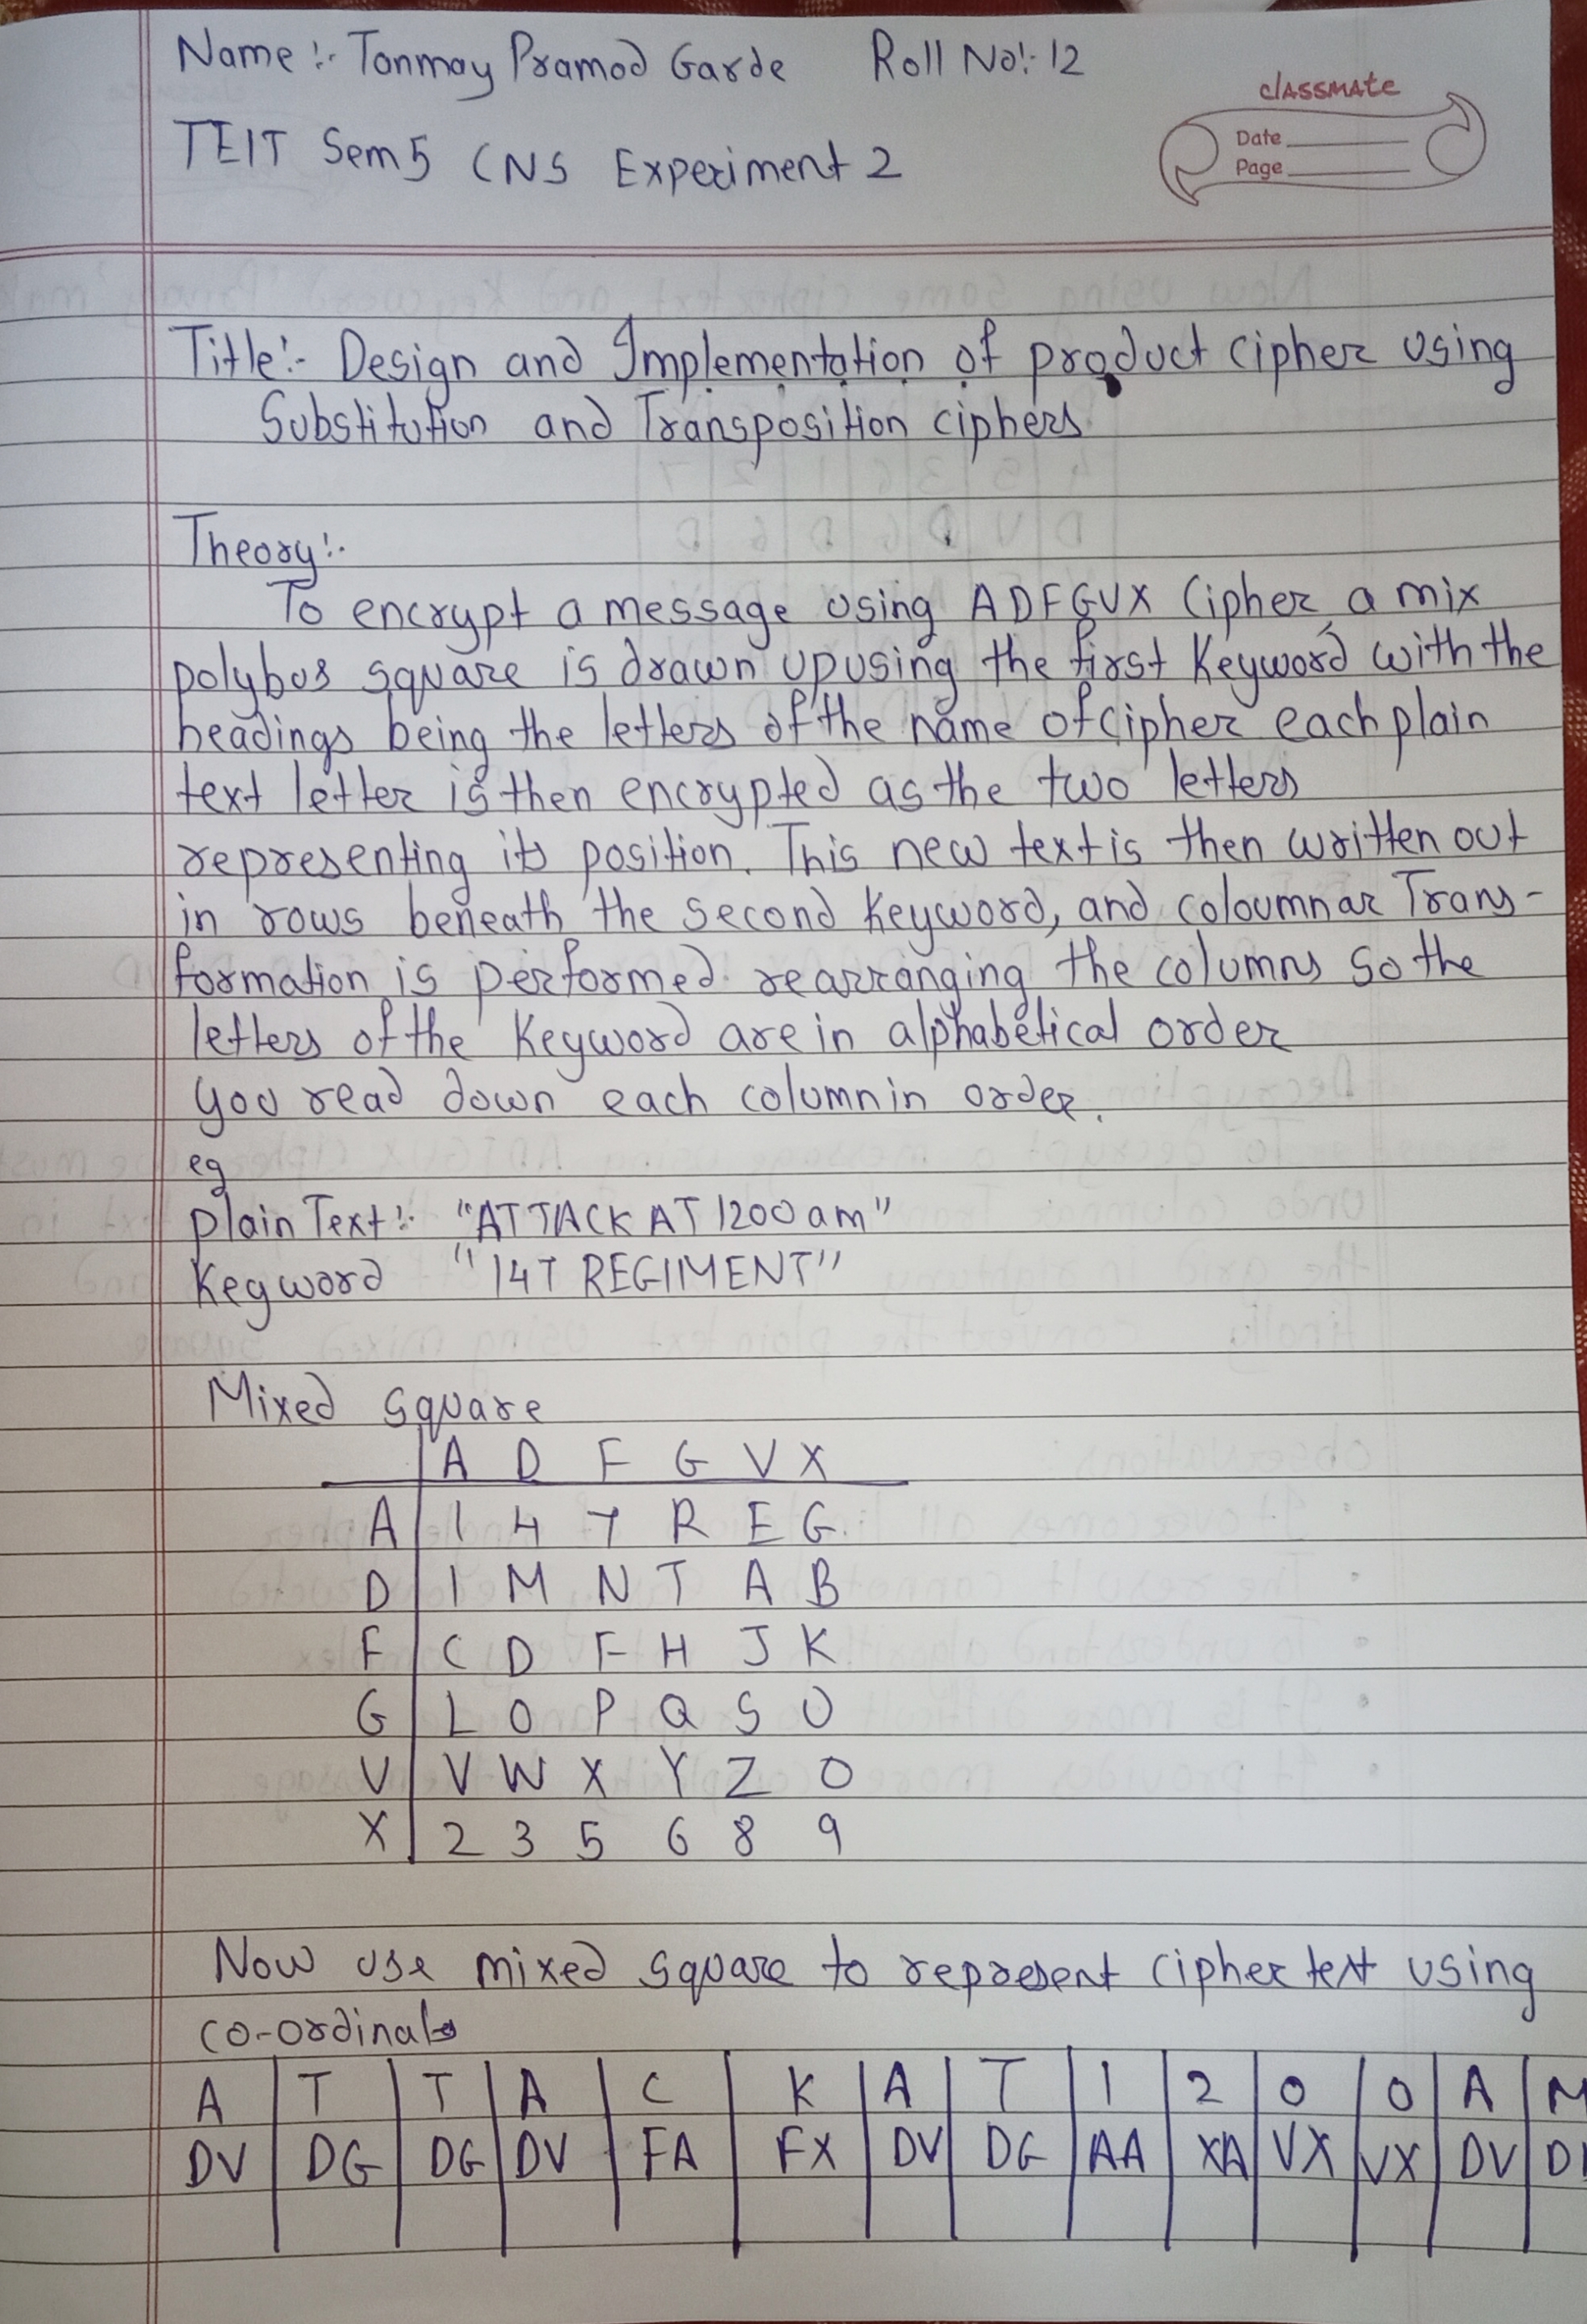 Name :- Tanmay Pramod Garde Roll No:- 12
classmate
Date
Page
TEIT Sem 5 CNS Experiment 2
Title:- Design and Implementation of product cipher using
Substitution and Transposition ciphers
Theory:-
To encrypt a message using ADFGVX Cipher, a mix
polybus square is drawn up using the first Keyword with the
headings being the letters of the name of cipher each plain
text letter is then encrypted as the two letters
representing its position. This new text is then written out
in rows beneath the second Keyword, and coloumnar Trans-
formation is performed. rearranging the columns so the
letters of the Keyword are in alphabetical order
you read down each column in order.
eg
Plain Text:- "ATTACK AT 1200 am"
Keyword "147 REGIMENT"
Mixed square
A D F G V X
A 1 4 7 R E G
D I M N T A B
F C D F H J K
G L O P Q S U
V V W X Y Z 0
X 2 3 5 6 8 9
Now use mixed square to represent cipher text using
co-ordinals
A T T A C K A T 1 2 0 0 A M
DV DG DG DV FA FX DV DG AA XA VX VX DV